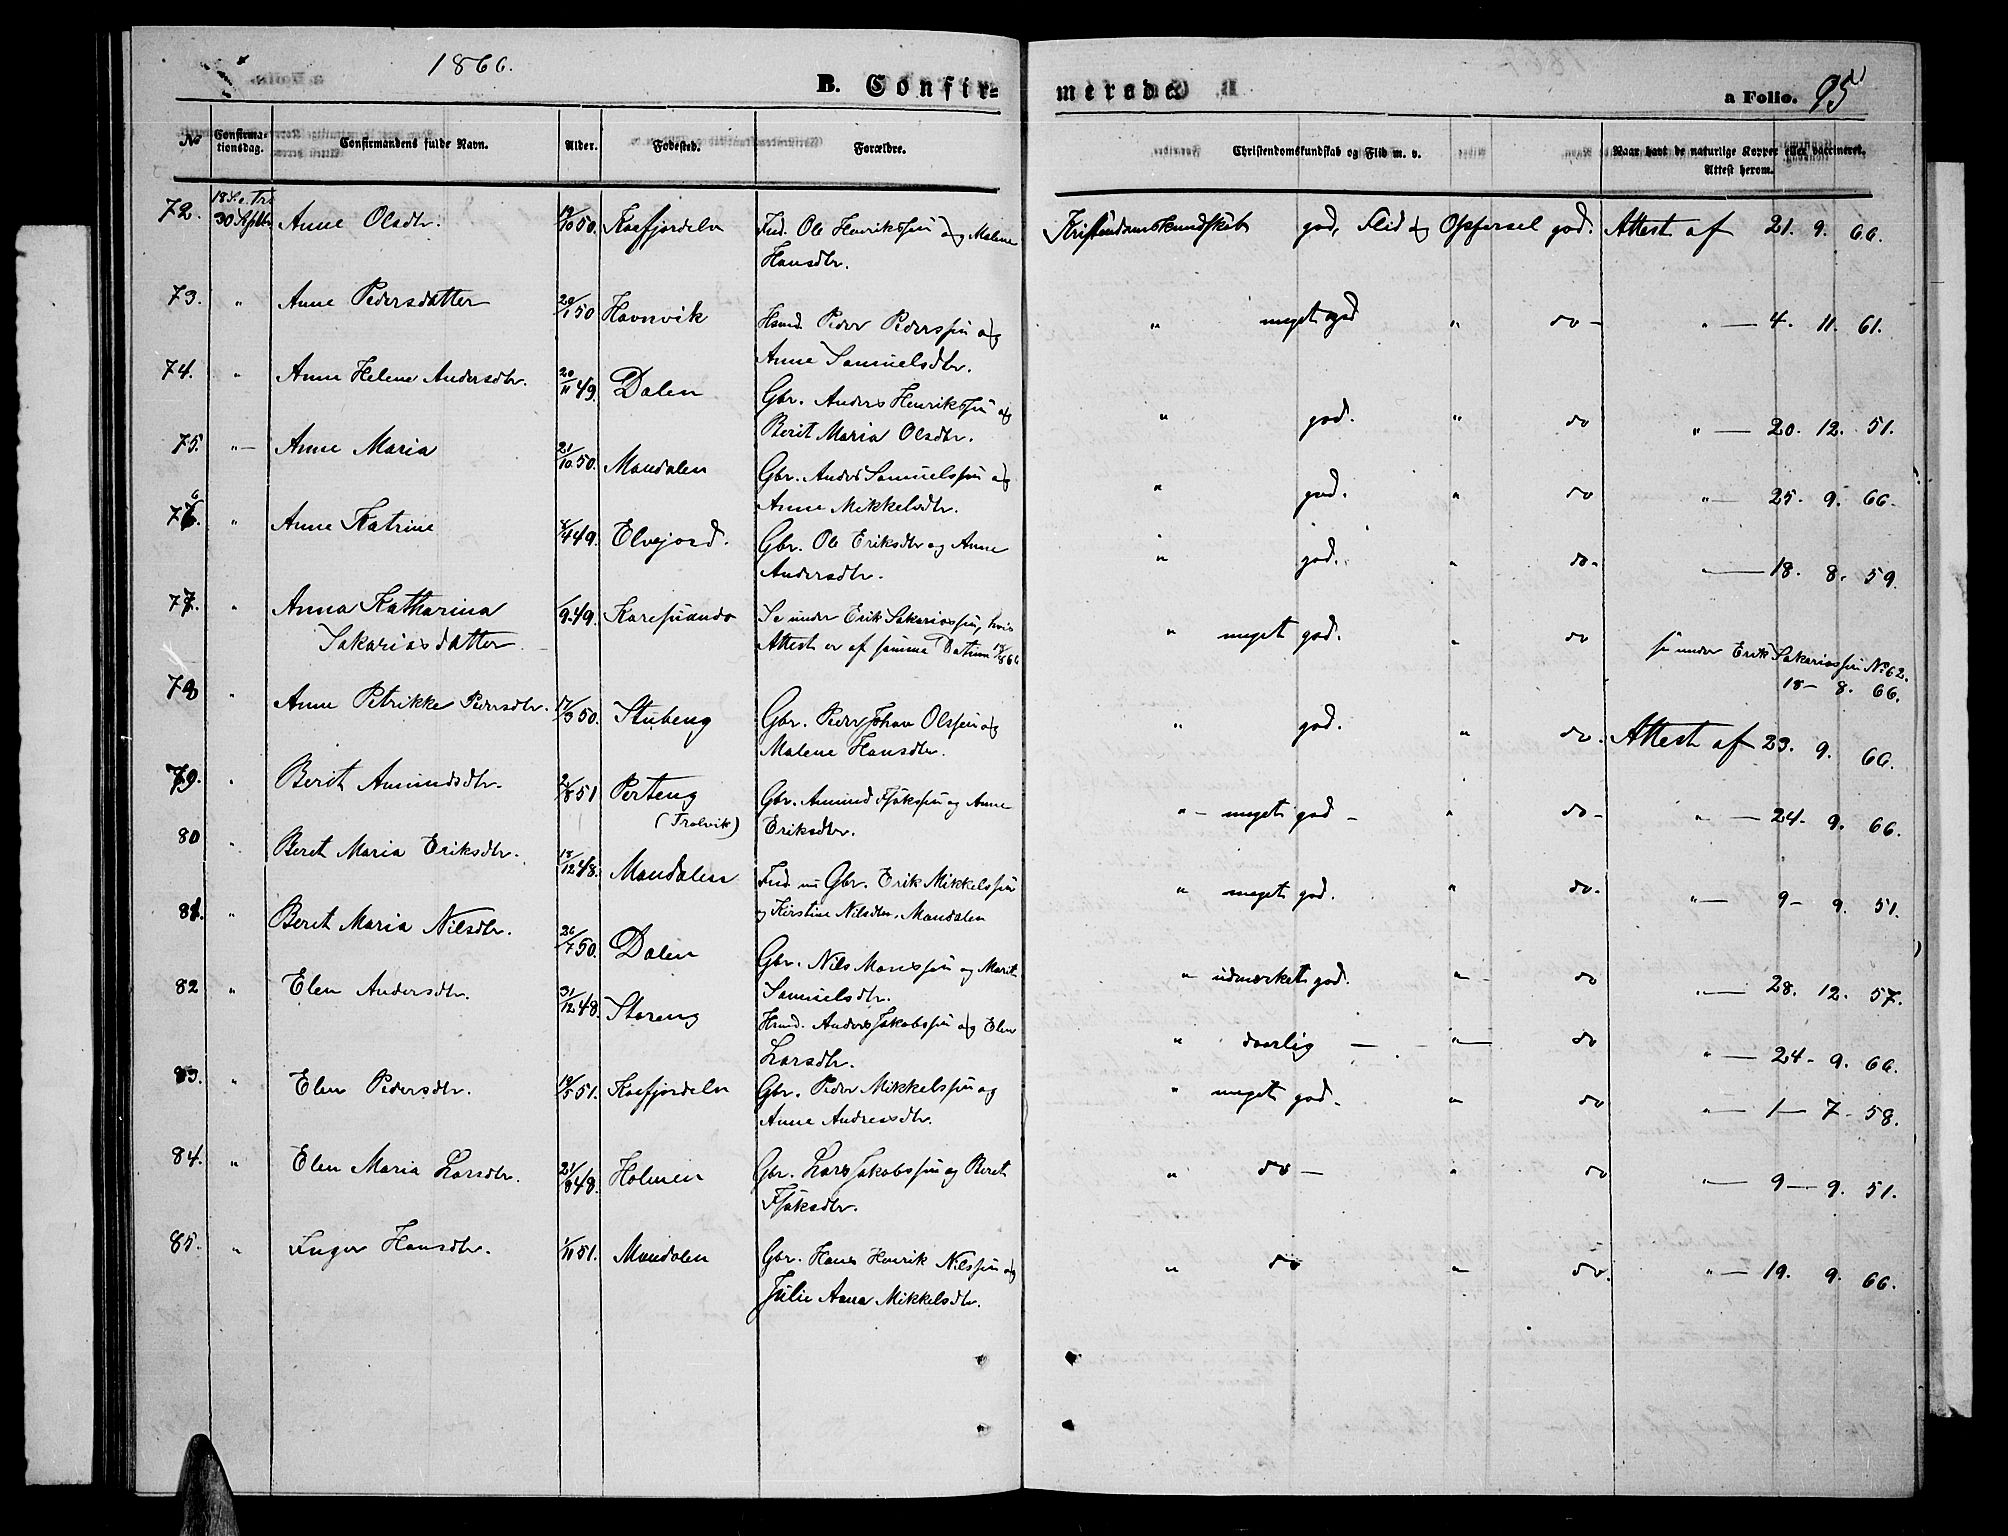 1866.
B. Confir-
merede
a Folio. 95
No
Confirmationsdag.
Confirmandens fulde Navn.
Alder.
Fødested.
Forældre.
Christendomskundskab og Flid m. v.
Naar havt de naturlige Kopper eller vaccineret. Attest herom.
72. 18 S. e. Tri 30 Septbr Anne Olsdtr. 50. Kaafjordeln Ind. Ole Henrikssen og Malene Kristendomskundskab god, Flid og Opførsel god. Attest af 21. 9. 66.
Hansdtr.
73. " Anne Pedersdatter 20/1 50 Havnvik Husmd. Peder Pedersen og " meget god " do - " — 4. 11. 61.
Anne Samuelsdtr.
74. " Anne Helene Andersdtr. 20/11 49. Dalen Gbr. Anders Henrikssen og " god. " do " — 20. 12. 51.
Berit Maria Olsdtr.
75. "— Anne Maria 21/10 50. Mandalen Gbr. Anders Samuelssen og " god. " do " — 25. 9. 66.
Anne Mikkelsdtr.
76. " Anne Katrine 8/4 49. Elvejord. Gbr. Ole Eriksdtr og Anne " god. " do - " — 18. 8. 59.
Andersdtr.
77. " Anna Katharina /9 49. Karesuando Se under Erik Sakariassen, hvis " meget god. " do se under Erik Sakariassen No 62.
Sakariasdatter Attest er af samme Datum 18/8 66 18 - 8. 66.
78 " Anne Petrikke Pedersdtr. 17/3 50. Stubeng Gbr. Peder Johan Olssen og " god. " do. Attest af 23. 9. 66.
Malene Hansdtr.
79. " Berit Amundsdtr. 2/8 51 Porteng Gbr. Amund Isakssen og Anne " - meget god - " do - " — 24 - 9. 66.
(Trolvik) Eriksdtr.
80 " Beret Maria Eriksdtr. 18/12 48. Mandalen Ind. nu Gbr. Erik Mikkelssen " meget god. " do - " — 9 - 9. 51.
og Kirstine Nilsdtr. Mandalen
81. " Beret Maria Nilsdtr. 26/7 50. Dalen Gbr. Nils Monssen og Marit " udmærket god. " - do " — 28. 12. 57.
Samuelsdtr.
82 " Elen Andersdtr. 31/12 48. Storeng Husmd. Anders Jakobssen og Elen " daarlig — " — do " — 24 - 9. 66.
Larsdtr.
83. " Elen Pedersdtr. 18/5 51. Kaafjordeln Gbr. Peder Mikkelssen og " meget god. " do " — 1 — 7 - 58.
Anne Andreasdtr.
84. " Elen Maria Larsdtr. 21/8 48. Holmen Gbr. Lars Jakobssen og Beret " do - " do " — 9 — 9. 51.
Isaksdtr.
85. " Inger Hansdtr. 1/11 51. Mandalen Gbr. Hans Henrik Nilssen og " do " do. " — 19. 9. 66.
Julie Anna Mikkelsdtr.